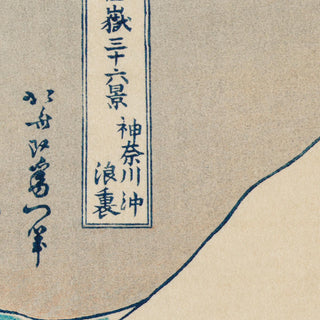 嶽三十六景
神奈川沖
浪裏
北斎改為一筆